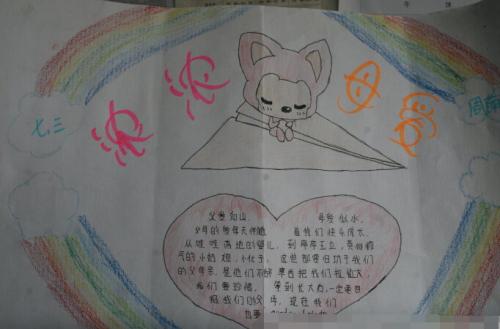 浓浓母爱
七.三
父爱如山 母爱似水,
父母的爱每天伴随 着我们快乐成大
从哇哇落地的婴儿, 到亭亭玉立, 亮丽帅
气的小姑娘,小伙子, 这些都要归功于我们
的父母亲,是他们不 把我们抚
我们要珍惜, 等到长大后,一定要
报我们的父母, 现在我们